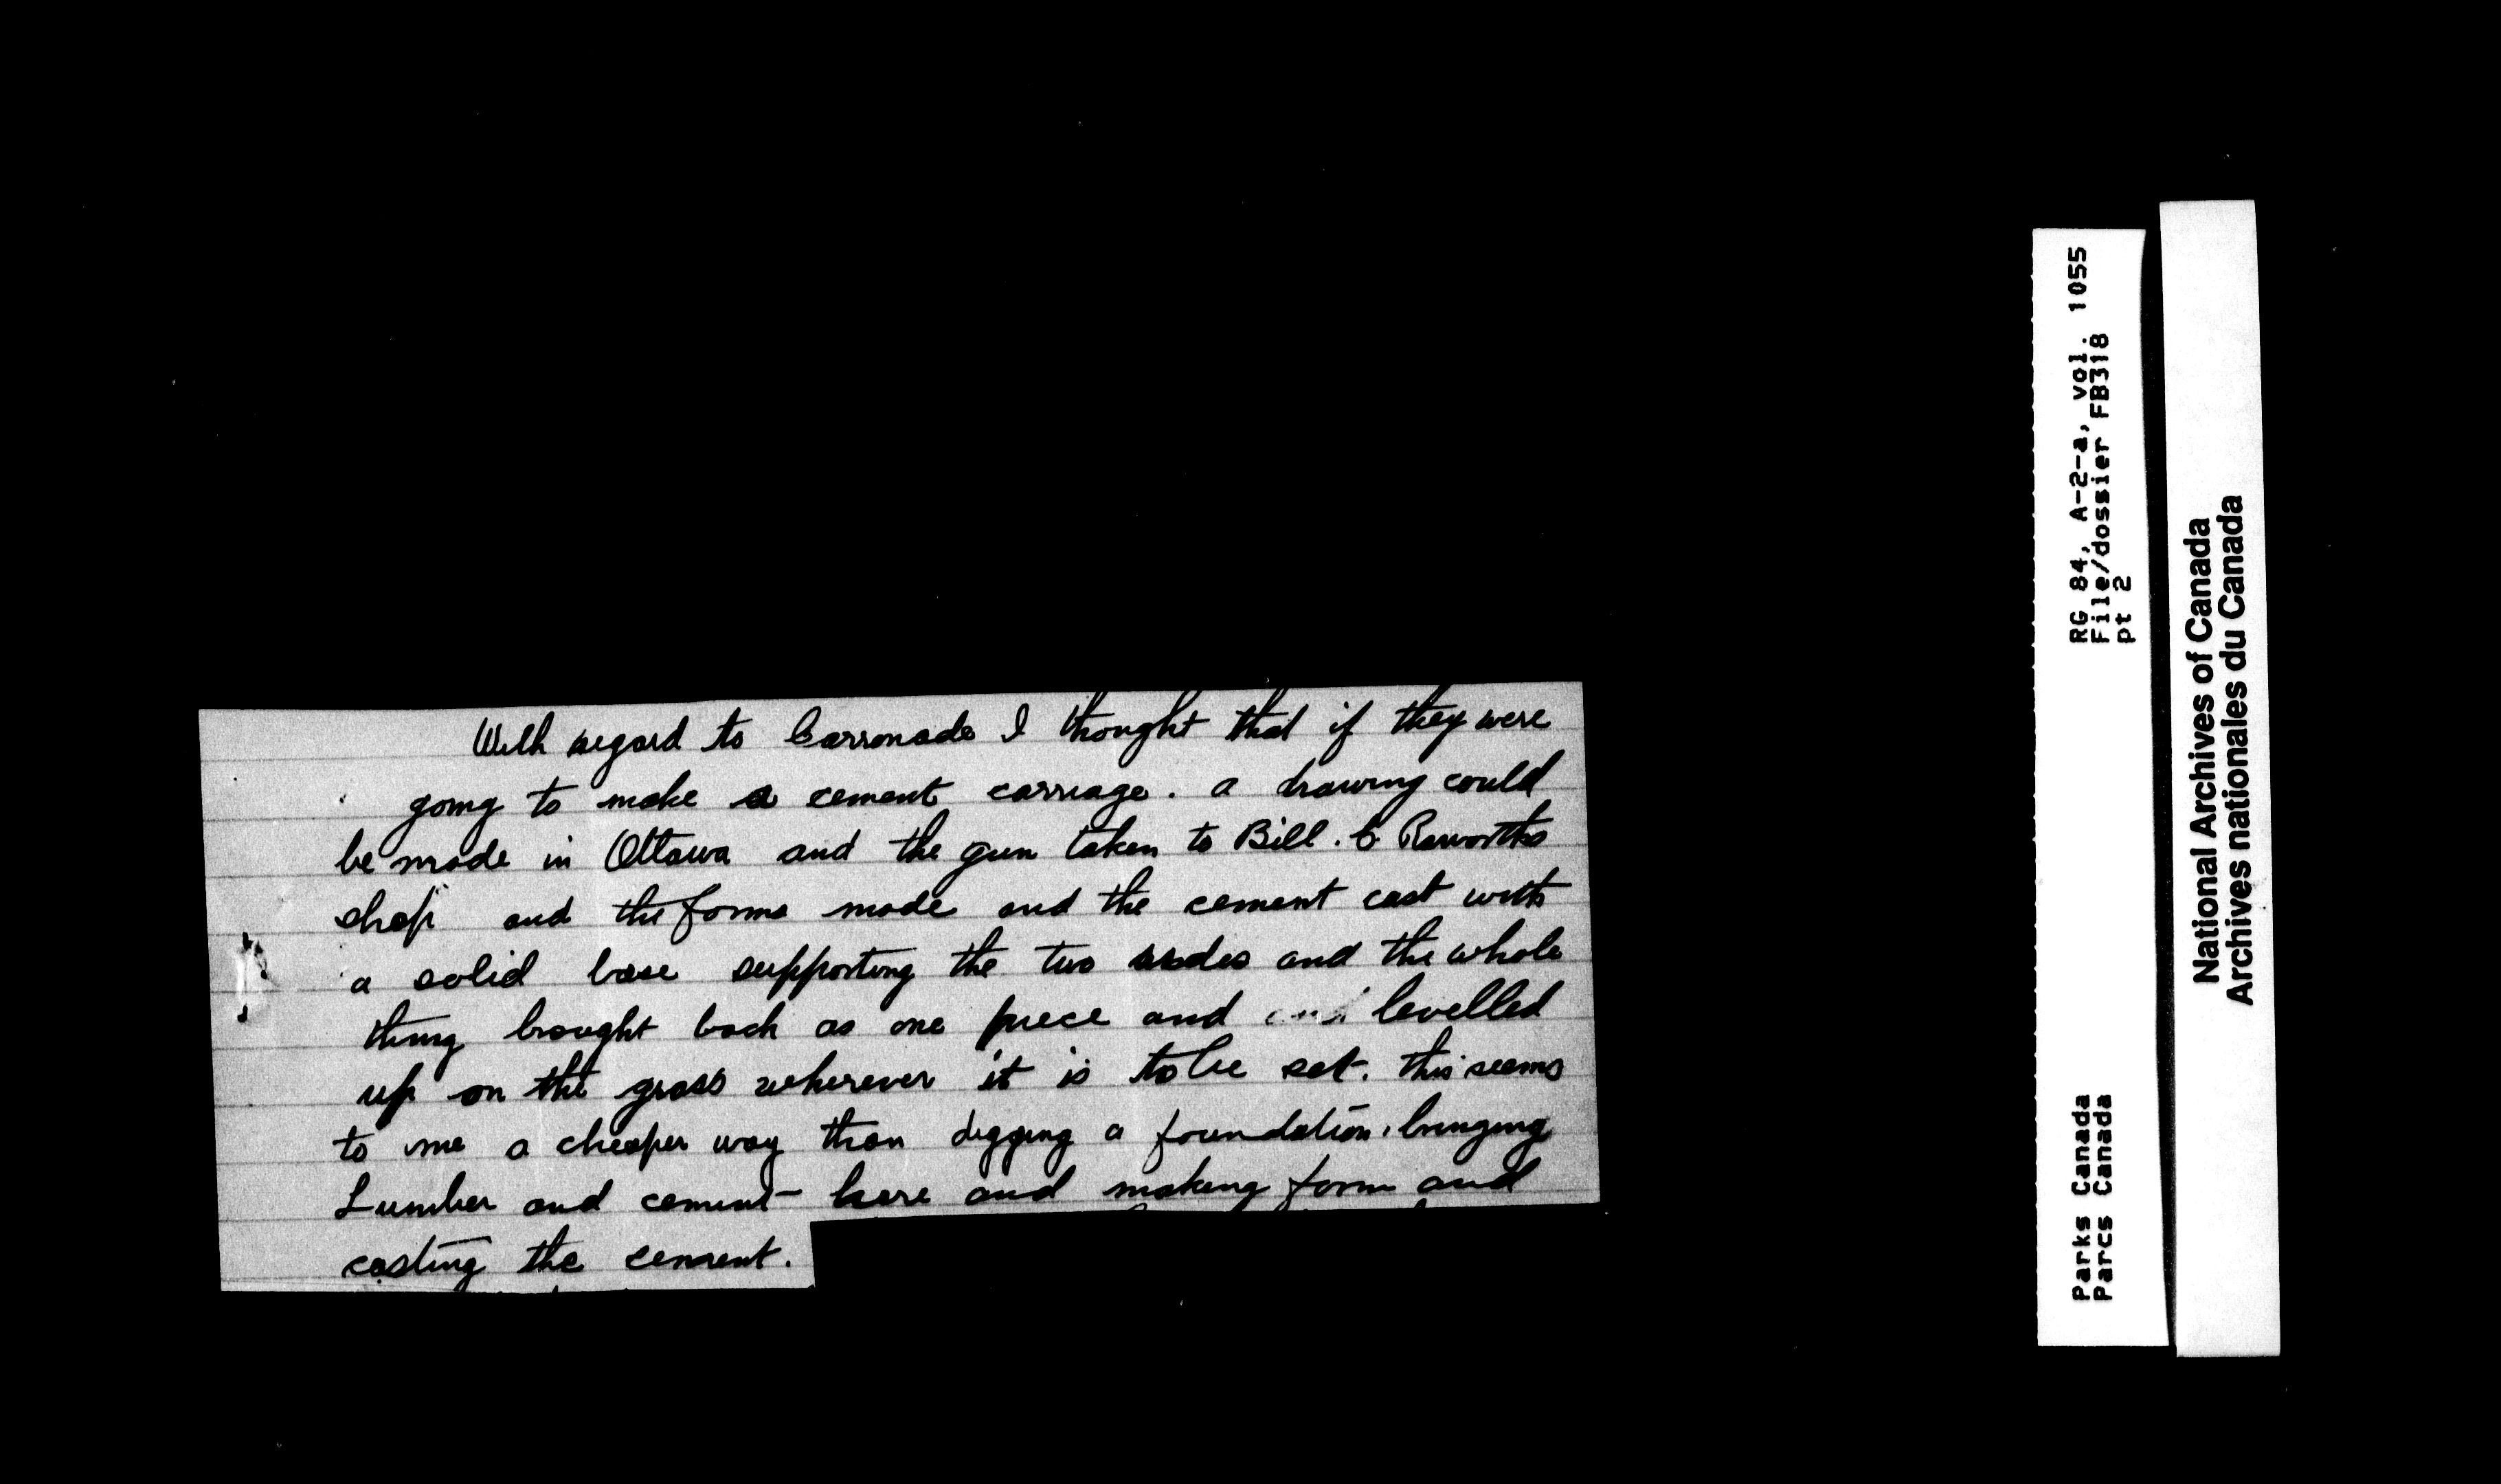 With regard to Carronade I thought that if they were
going to make a cement carriage. a drawing could
be made in Ottawa and the gun taken to Bill. C Raworths
shop and the forms made and the cement cast with
a solid base supporting the two sides and the whole
thing brought back as one piece and and levelled
up on the grass wherever it is to be set. this seems
to me a cheaper way than digging a foundation, bringing
Lumber and cement here and making form and
casting the cement.
RG 84, A-2-a, vol. 1055
File/dossier FB318
pt 2
Parks Canada
Parcs Canada
National Archives of Canada
Archives nationales du Canada